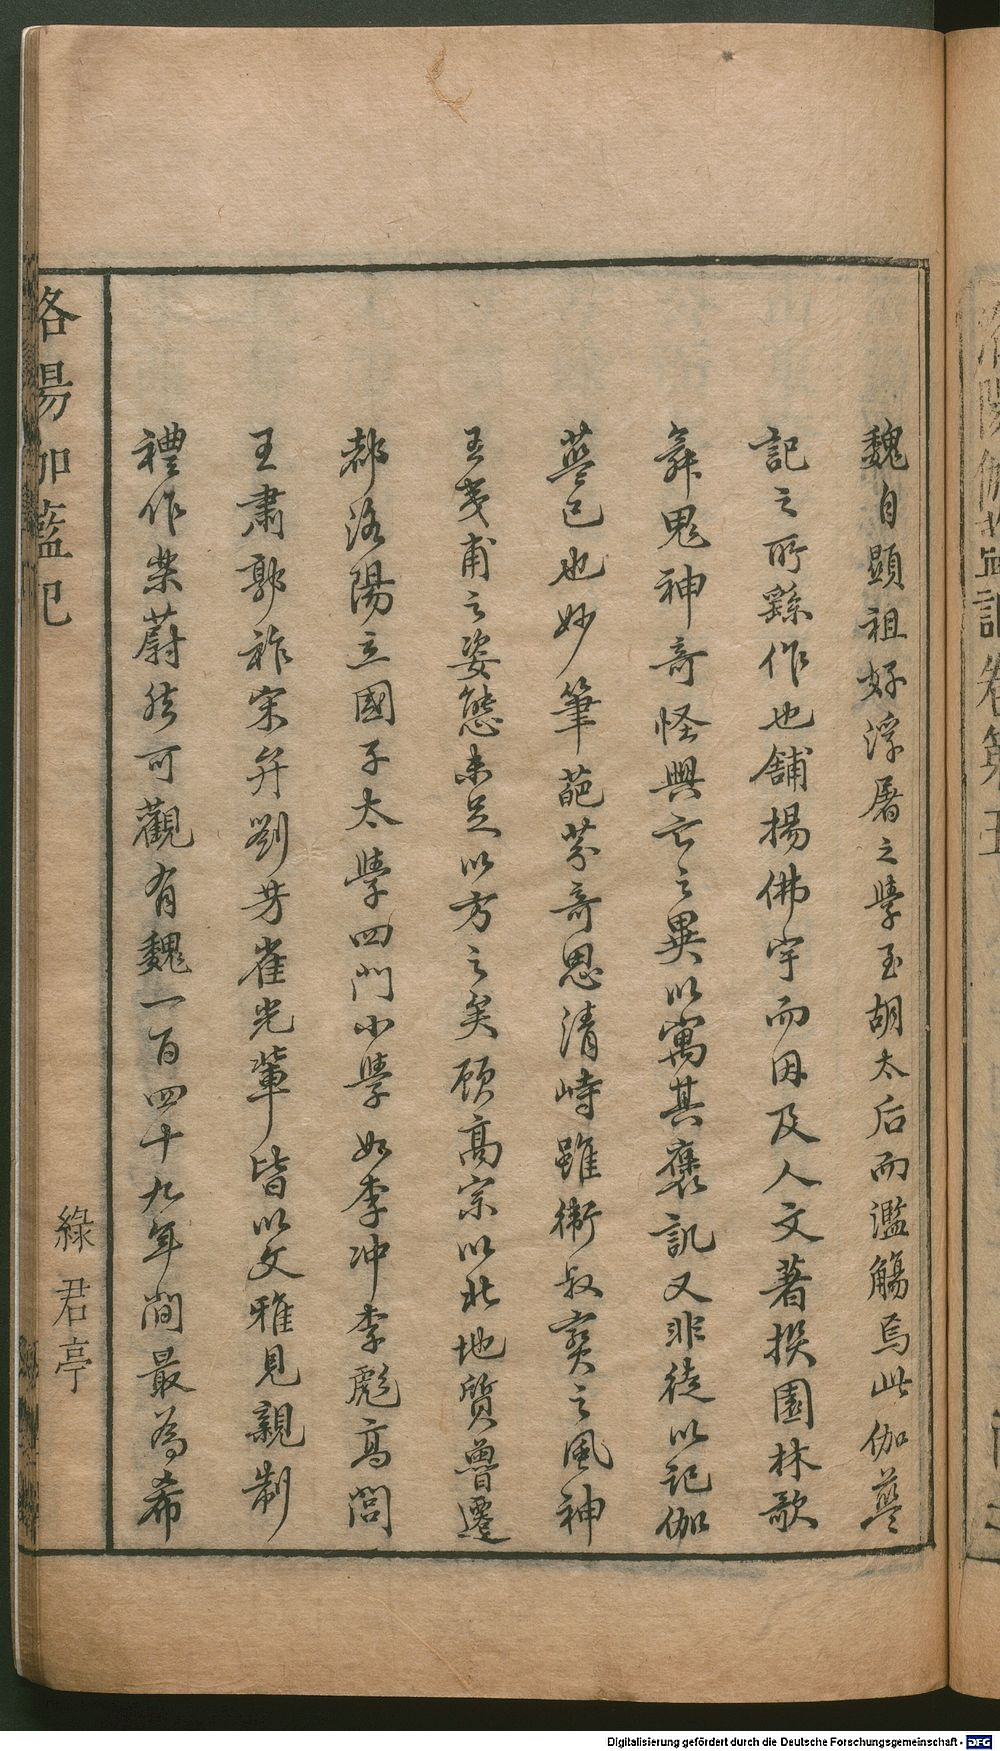 魏自顯祖好浮屠之學至胡太后而濫觴焉此伽藍
記之所繇作也舖揚佛宇而因及人文著撰園林歌
舞鬼神奇怪興亡之異以寓其褒訊又非徒以記伽
藍已也妙筆葩芬奇思清峙雖衛叔寶之風神
王夷甫之姿態未足以方之矣顧高宗以北地質魯遷
都洛陽立國子太學四門小學如李冲李彪高閭
王肅郭祚宋弁劉芳崔光輩皆以文雅見親制
禮作樂蔚然可觀有魏一百四十九年間最為希
洛陽伽藍記
綠君亭
洛陽伽藍記卷第五
Digitalisierung gefördert durch die Deutsche Forschungsgemeinschaft - DFG